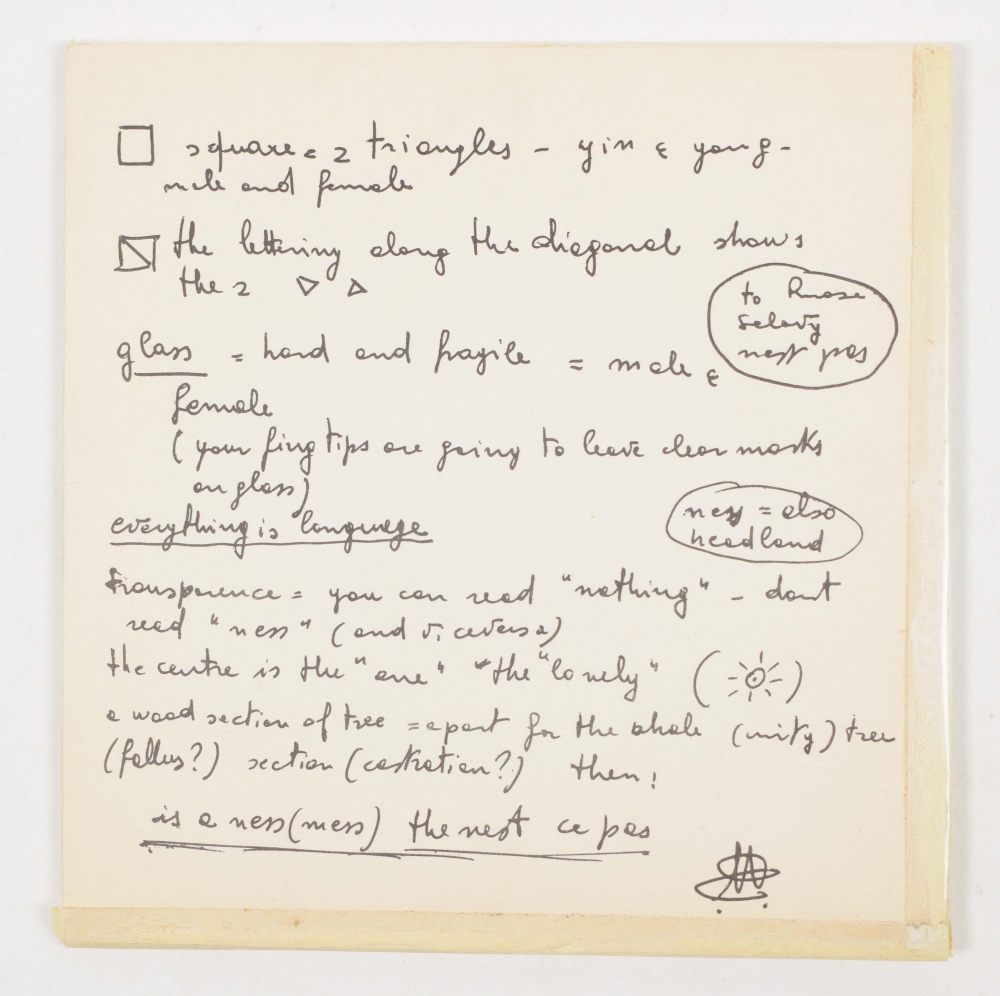 square = 2 triangles - yin & yang -
male and female
the lettering along the diagonal shows
the 2
to Rrose
Selavy
nest pas
glass = hard and fragile = male &
female
(your fing tips are going to leave clear marks
on glass)
everything is language
ness = also
headland
transparence = you can read "nothing" - dont
read "ness" (and viceversa)
the centre is the "one" "the "lonely" ( )
a wood section of tree = apart for the whole (unity) tree
(fallus?) section (castration?) then!
is a ness (mess) the nest ce pas